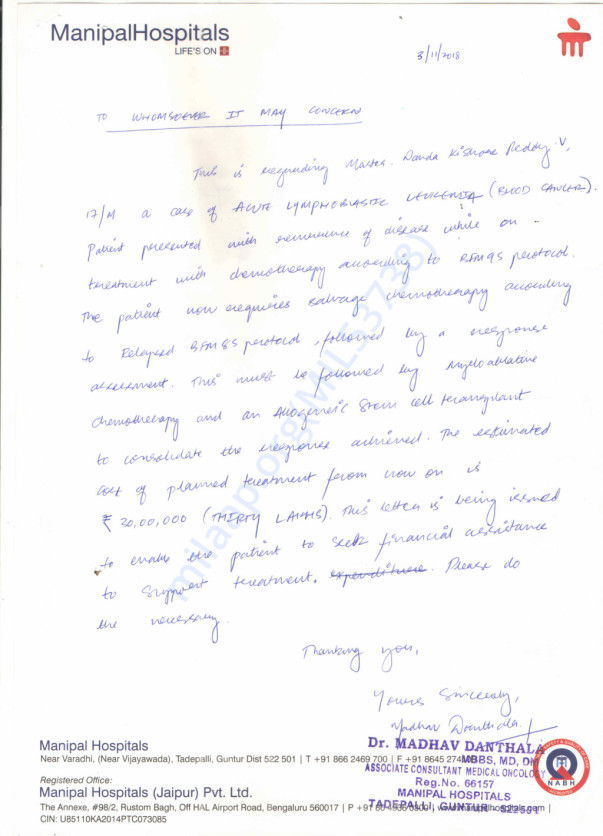 ManipalHospitals
LIFE'S ON
3/11/2018
TO WHOMSOEVER IT MAY CONCERN
This is regarding Master. Danda Kishore Reddy. V,
17/M a case of ACUTE LYMPHOBLASTIC LEUKEMIA (BLOOD CANCER).
Patient presented with recurrence of disease while on
treatment with chemotherapy according to BFM95 protocol.
The patient now requires salvage chemotherapy according
to Relapsed BFM95 protocol, followed by a response
assessment. This must be followed by Myeloablative
chemotherapy and an Allogeneic Stem cell transplant
to consolidate the response achieved. The estimated
cost of planned treatment from now on is
₹ 30,00,000 (THIRTY LAKHS). This letter is being issued
to enable the patient to seek financial assistance
to support treatment. expenditure. Please do
the necessary.
Thanking you,
Yours Sincerely,
Madhav Danthala
milaap.org(MHL53738)
Dr. MADHAV DANTHALA
MBBS, MD, DM
ASSOCIATE CONSULTANT MEDICAL ONCOLOGY
Reg.No. 66157
MANIPAL HOSPITALS
TADEPALLI, GUNTUR - 522501
NABH
Manipal Hospitals
Near Varadhi, (Near Vijayawada), Tadepalli, Guntur Dist 522 501 | T +91 866 2469 700 | F +91 8645 274
Registered Office:
Manipal Hospitals (Jaipur) Pvt. Ltd.
The Annexe, #98/2, Rustom Bagh, Off HAL Airport Road, Bengaluru 560017 | P +91 80 4936 0300 | www.manipalhospitals.com |
CIN: U85110KA2014PTC073085